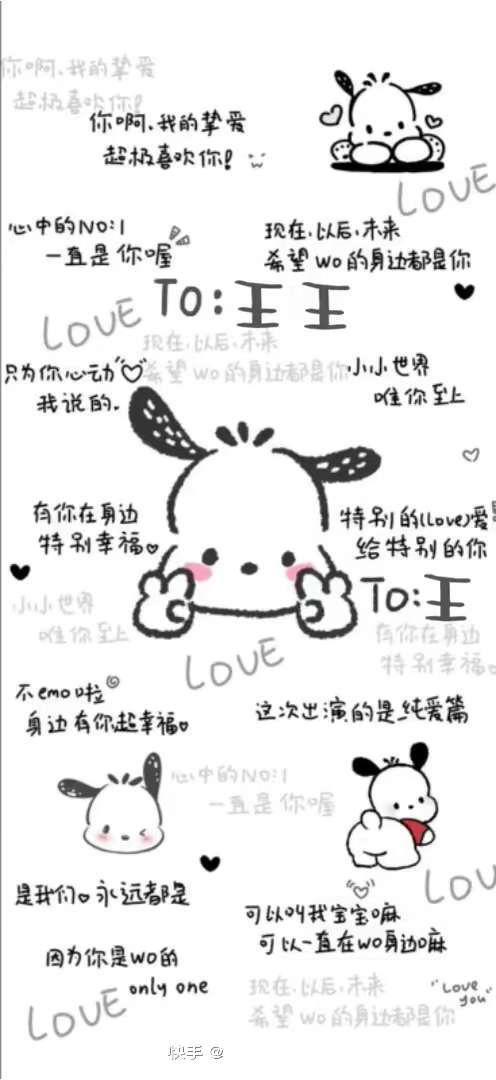 你啊、我的挚爱
超极喜欢你!
你啊、我的挚爱
超极喜欢你!
LOVE
心中的NO:1
一直是你喔
现在、以后、未来
希望wo的身边都是你
To:王王
LOVE
现在、以后、未来
希望wo的身边都是你
只为你心动
我说的.
小小世界
唯你至上
有你在身边
特别幸福
特别的(love)爱
给特别的你
To:王
小小世界
唯你至上
有你在身边
特别幸福
LOVE
不emo啦
身边有你超幸福
这次出演的是纯爱篇
心中的NO:1
一直是你喔
LOVE
是我们 永远都是
可以叫我宝宝嘛
可以一直在wo身边嘛
因为你是wo的
only one
现在、以后、未来
希望wo的身边都是你
"Love
you"
LOVE
快手 @